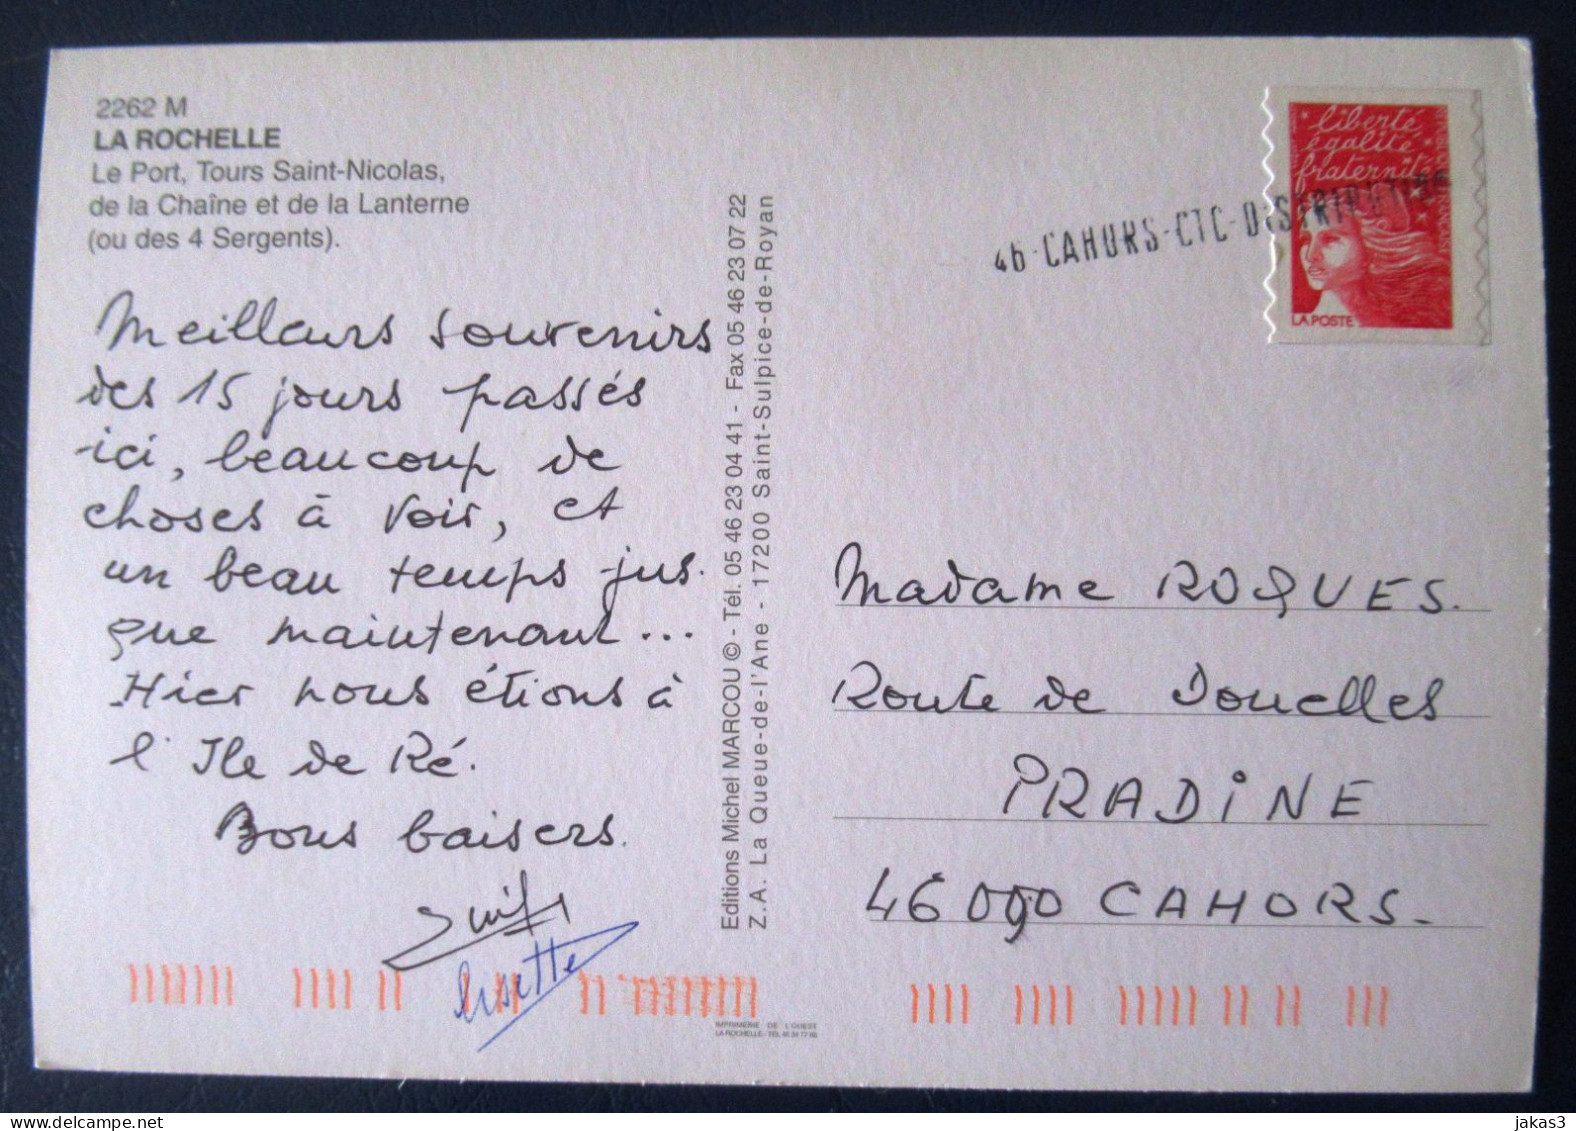 2262 M
LA ROCHELLE
Le Port, Tours Saint-Nicolas,
de la Chaîne et de la Lanterne
(ou des 4 Sergents).
Meilleurs souvenirs
des 15 jours passés
ici, beaucoup de
choses à voir, et
un beau temps jus.
que maintenant...
Hier nous étions à
l'Ile de Ré.
Bons baisers.
Lisette
Editions Michel MARCOU © - Tél. 05 46 23 04 41 - Fax 05 46 23 07 22
Z.A. La Queue-de-l'Ane - 17200 Saint-Sulpice-de-Royan
IMPRIMERIE DE L'OUEST
LA ROCHELLE - TÉL.
46-CAHORS-CTC-DISTRIBUTION
liberté
égalité
fraternité
LA POSTE
Madame ROQUES.
Route de Douelles
PRADINE
46000 CAHORS.
jakas3